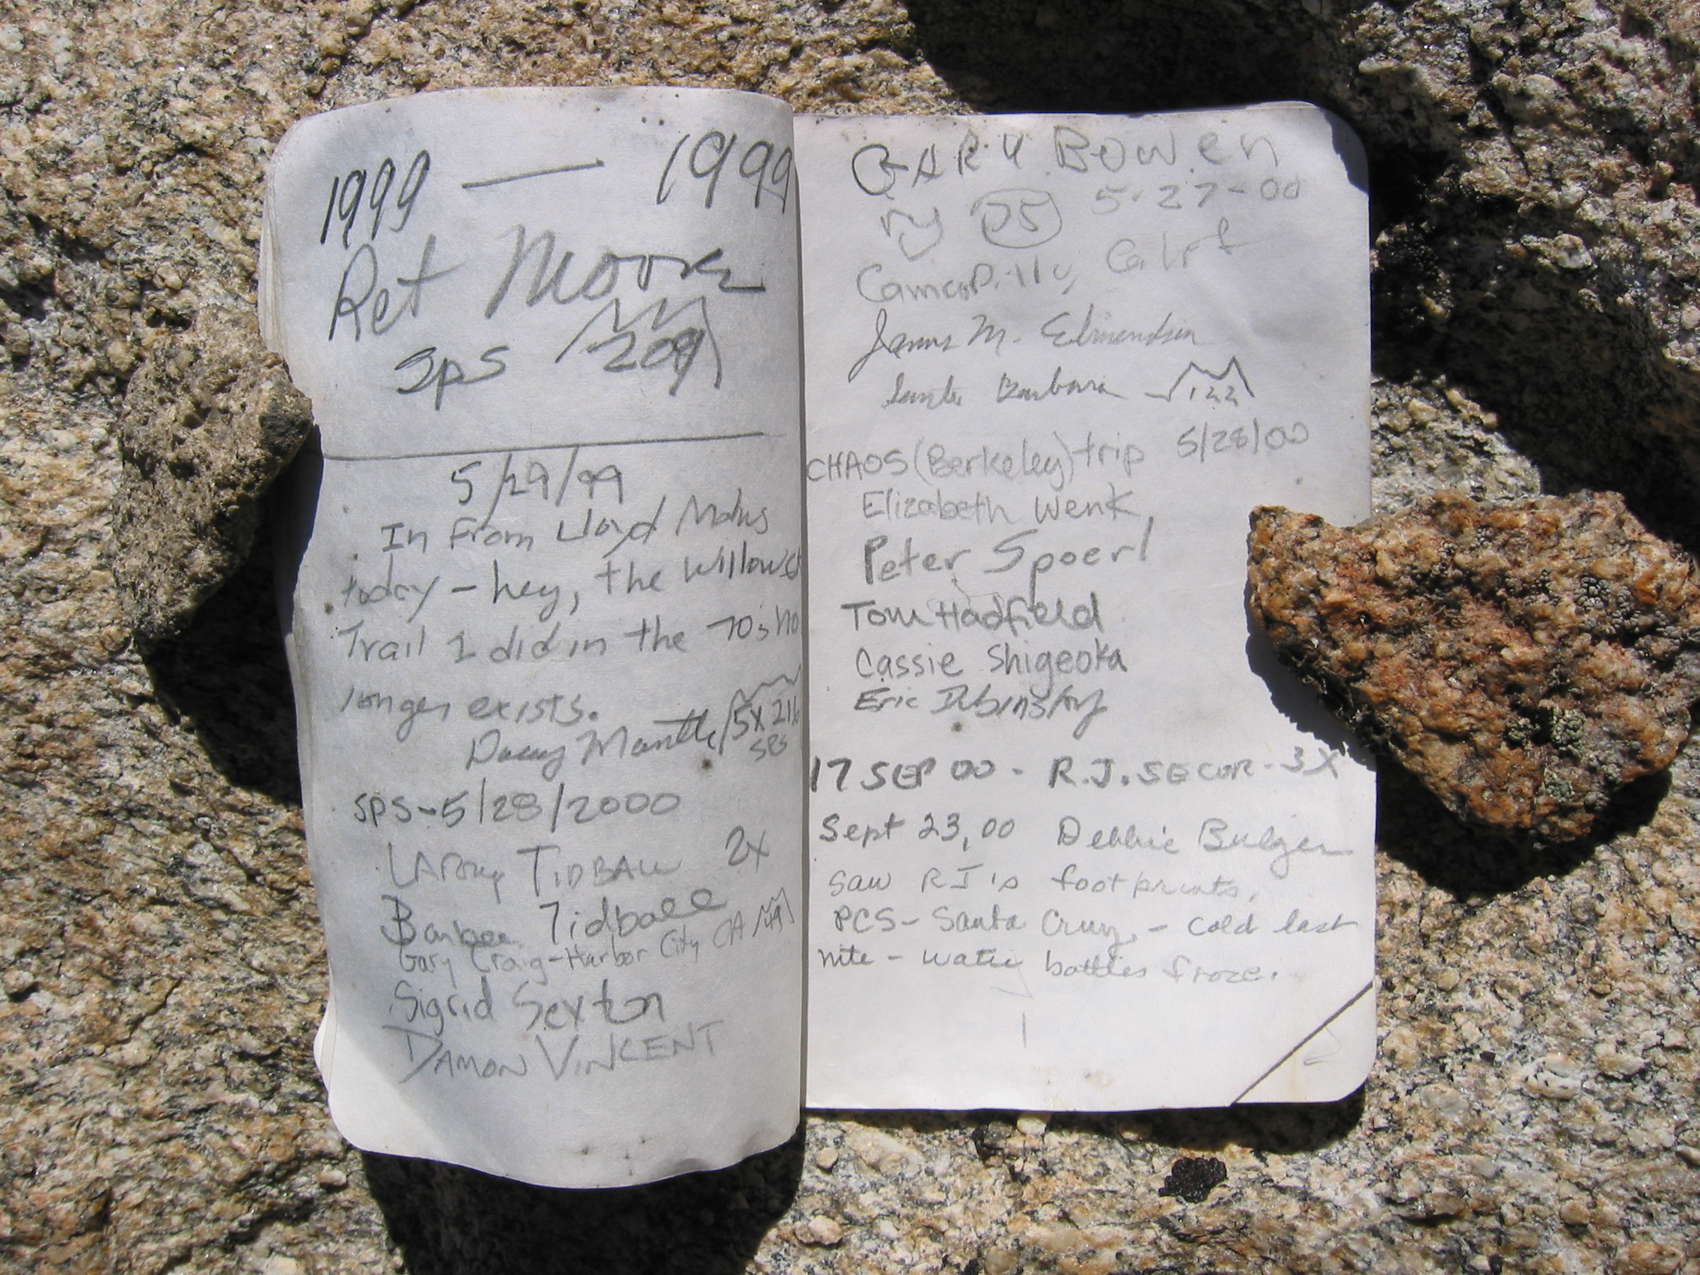 1999 — 1999
Ret Moore
SPS 209
5/29/99
In From Lloyd Mdws
today - hey, the Willow
Trail I did in the 70's no
longer exists.
Mantle 5X
SPS
SPS-5/28/2000
LARRY TIDBALL 2x
Barbee Tidball
Gary Craig-Harbor City CA
Sigrid Sexton
DAMON VINCENT
GARY Bowen
5-27-00
Calif
James M. Edmondson
Santa Barbara 122
CHAOS (Berkeley) trip 5/28/00
Elizabeth Wenk,
Peter Spoerl
Tom Hadfield
Cassie Shigeoka
Eric
17 SEP 00 - R.J. SECOR - 3X
Sept 23, 00 Debbie Bulger
saw RJ's footprints.
PCS - Santa Cruz, - cold last
nite - water bottles froze.